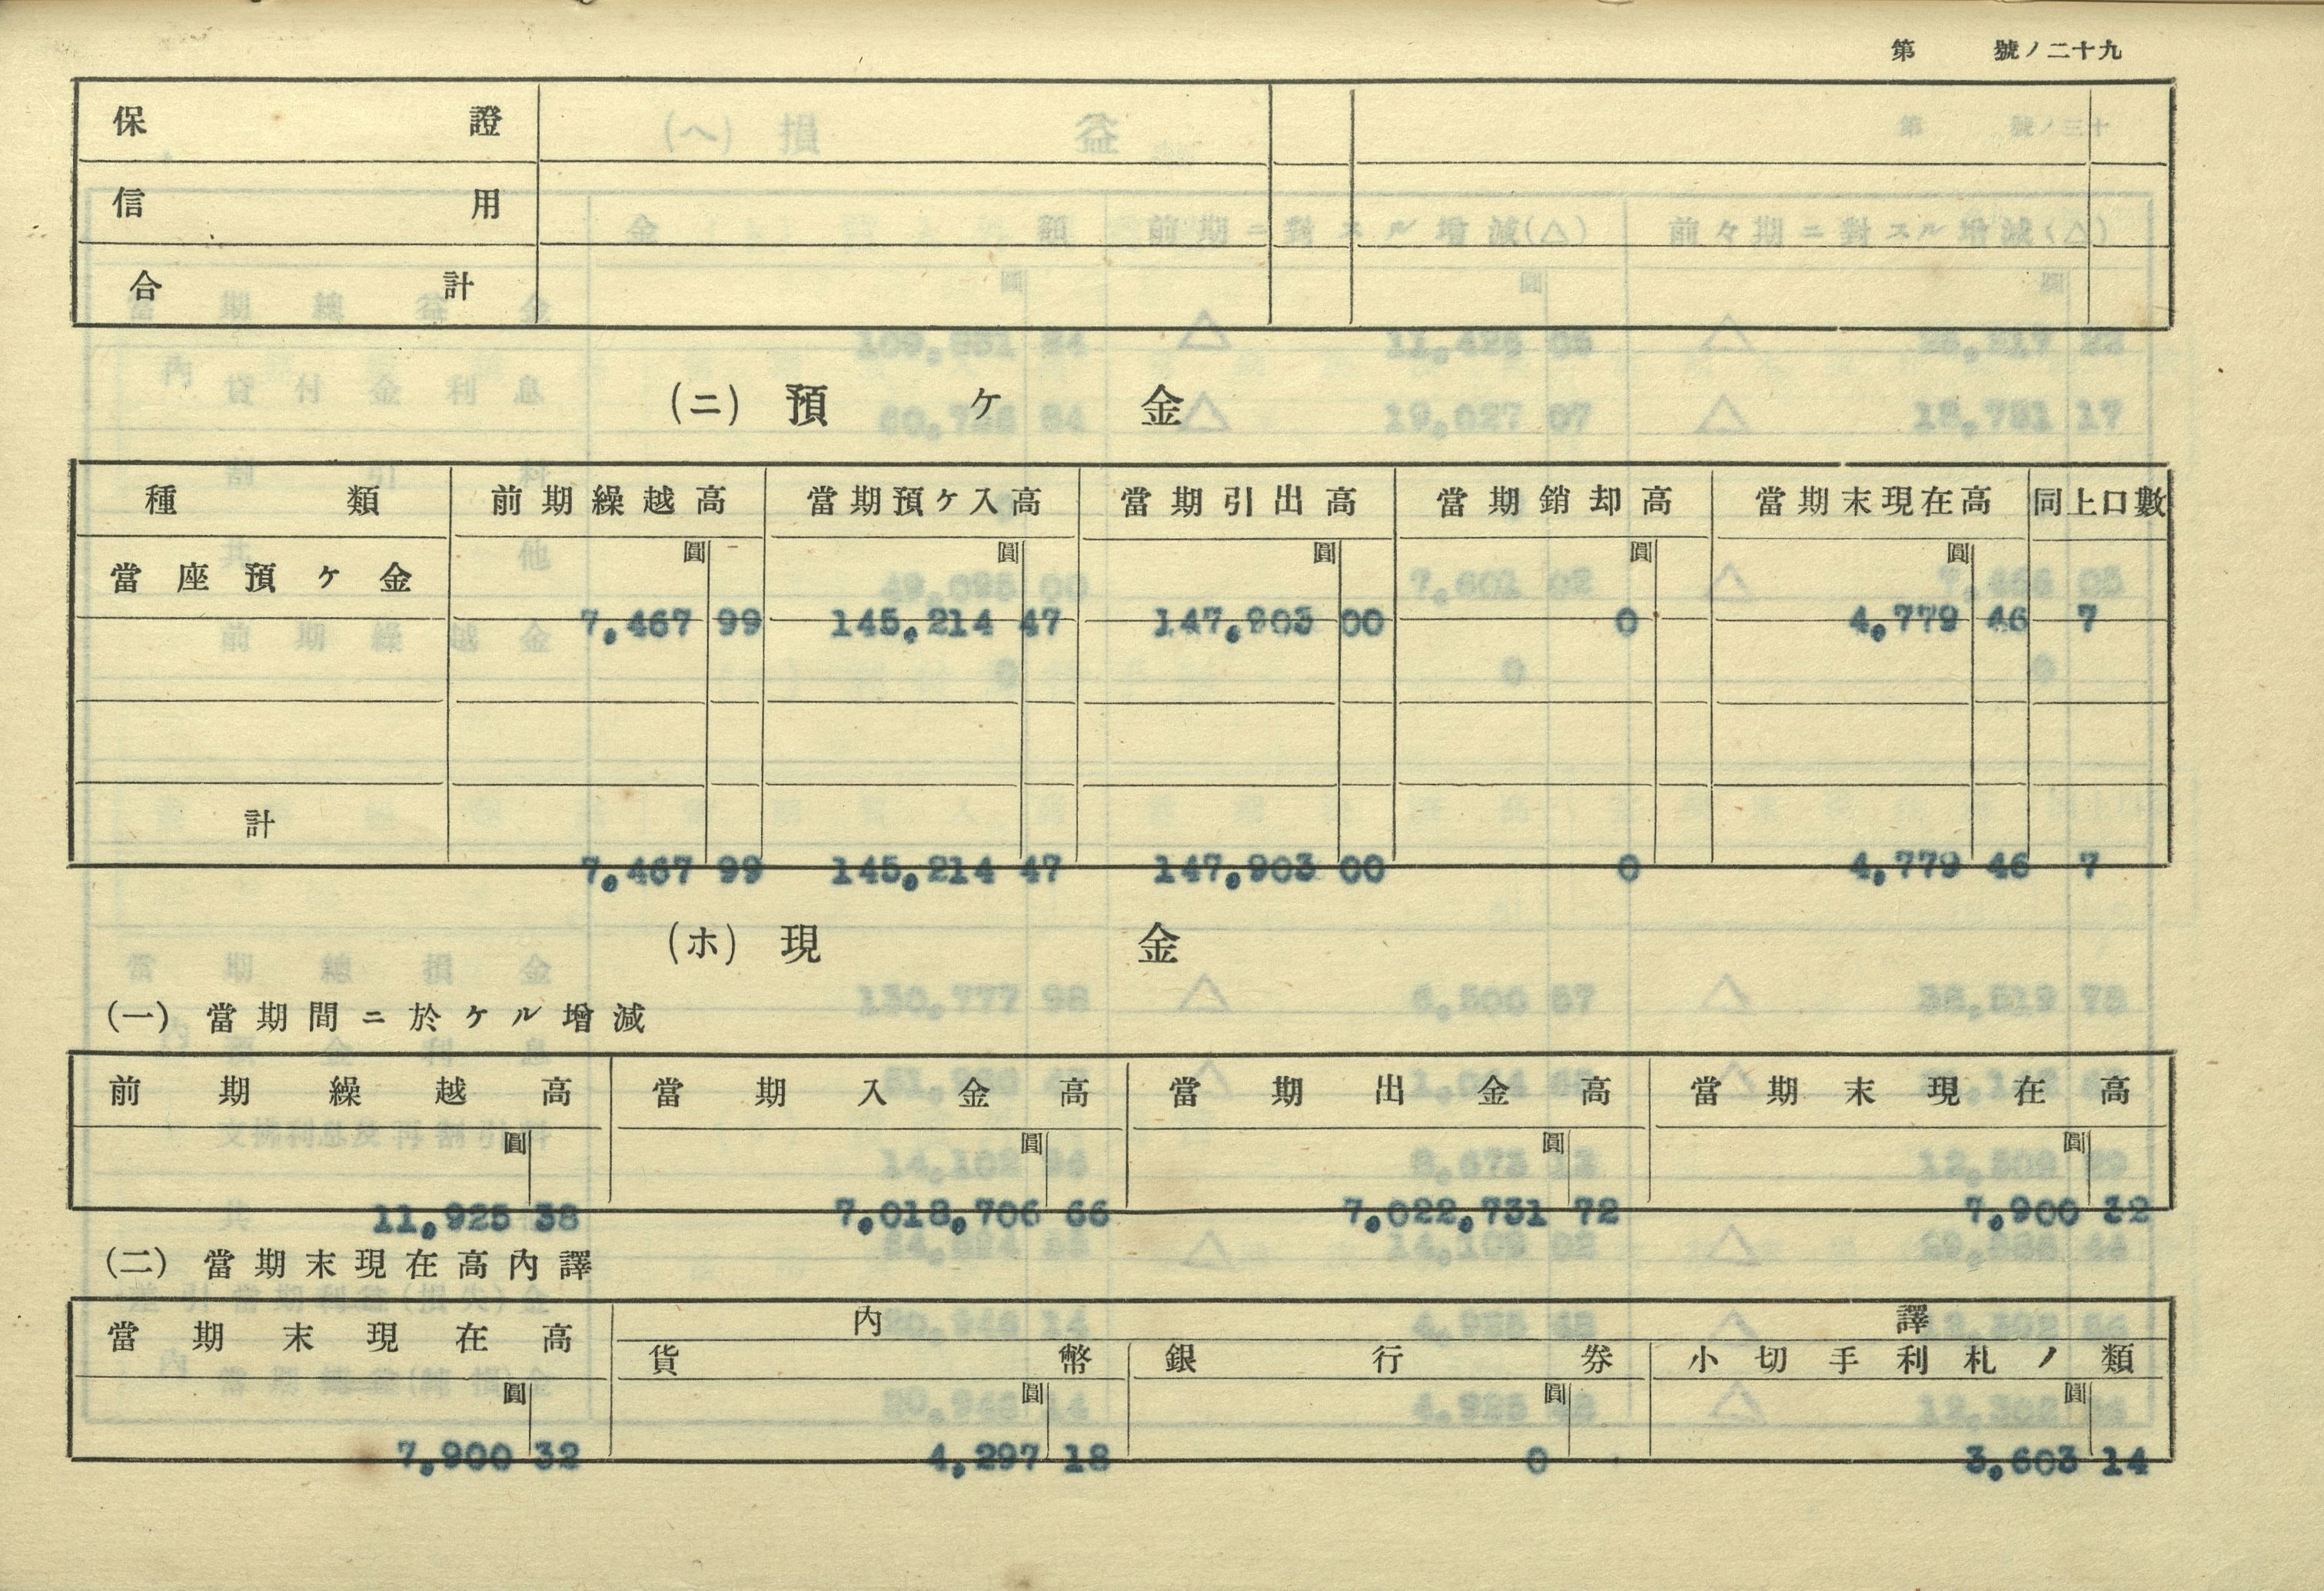 第 號ノ二十九
保證
信用
合計
(ニ) 預ケ金
種類 前期繰越高 當期預ケ入高 當期引出高 當期銷却高 當期末現在高 同上口數
圓 圓 圓 圓 圓
當座預ケ金 7,467 99 145,214 47 147,903 00 0 4,779 46 7
計 7,467 99 145,214 47 147,903 00 0 4,779 46 7
(ホ) 現金
(一) 當期間ニ於ケル增減
前期繰越高 當期入金高 當期出金高 當期末現在高
圓 圓 圓 圓
11,925 38 7,018,706 66 7,022,731 72 7,900 32
(二) 當期末現在高內譯
當期末現在高 內譯
貨幣 銀行券 小切手利札ノ類
圓 圓 圓 圓
7,900 32 4,297 18 0 3,603 14